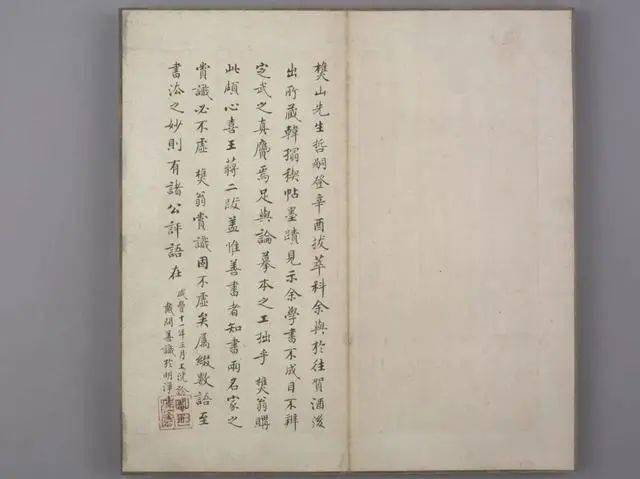 樊山先生哲嗣登辛酉拔萃科余與於往賀酒後
出所藏韓搨稧帖墨蹟見示余學書不成目不辨
定武之真贗焉足與論摹本之工拙乎 樊翁購
此頗心喜王蔣二跋蓋惟善書者知書兩名家之
賞識必不虛 樊翁賞識固不虛矣屬綴數語至
書法之妙則有諸公評語在
咸豐十一年三月上浣
識於明淨